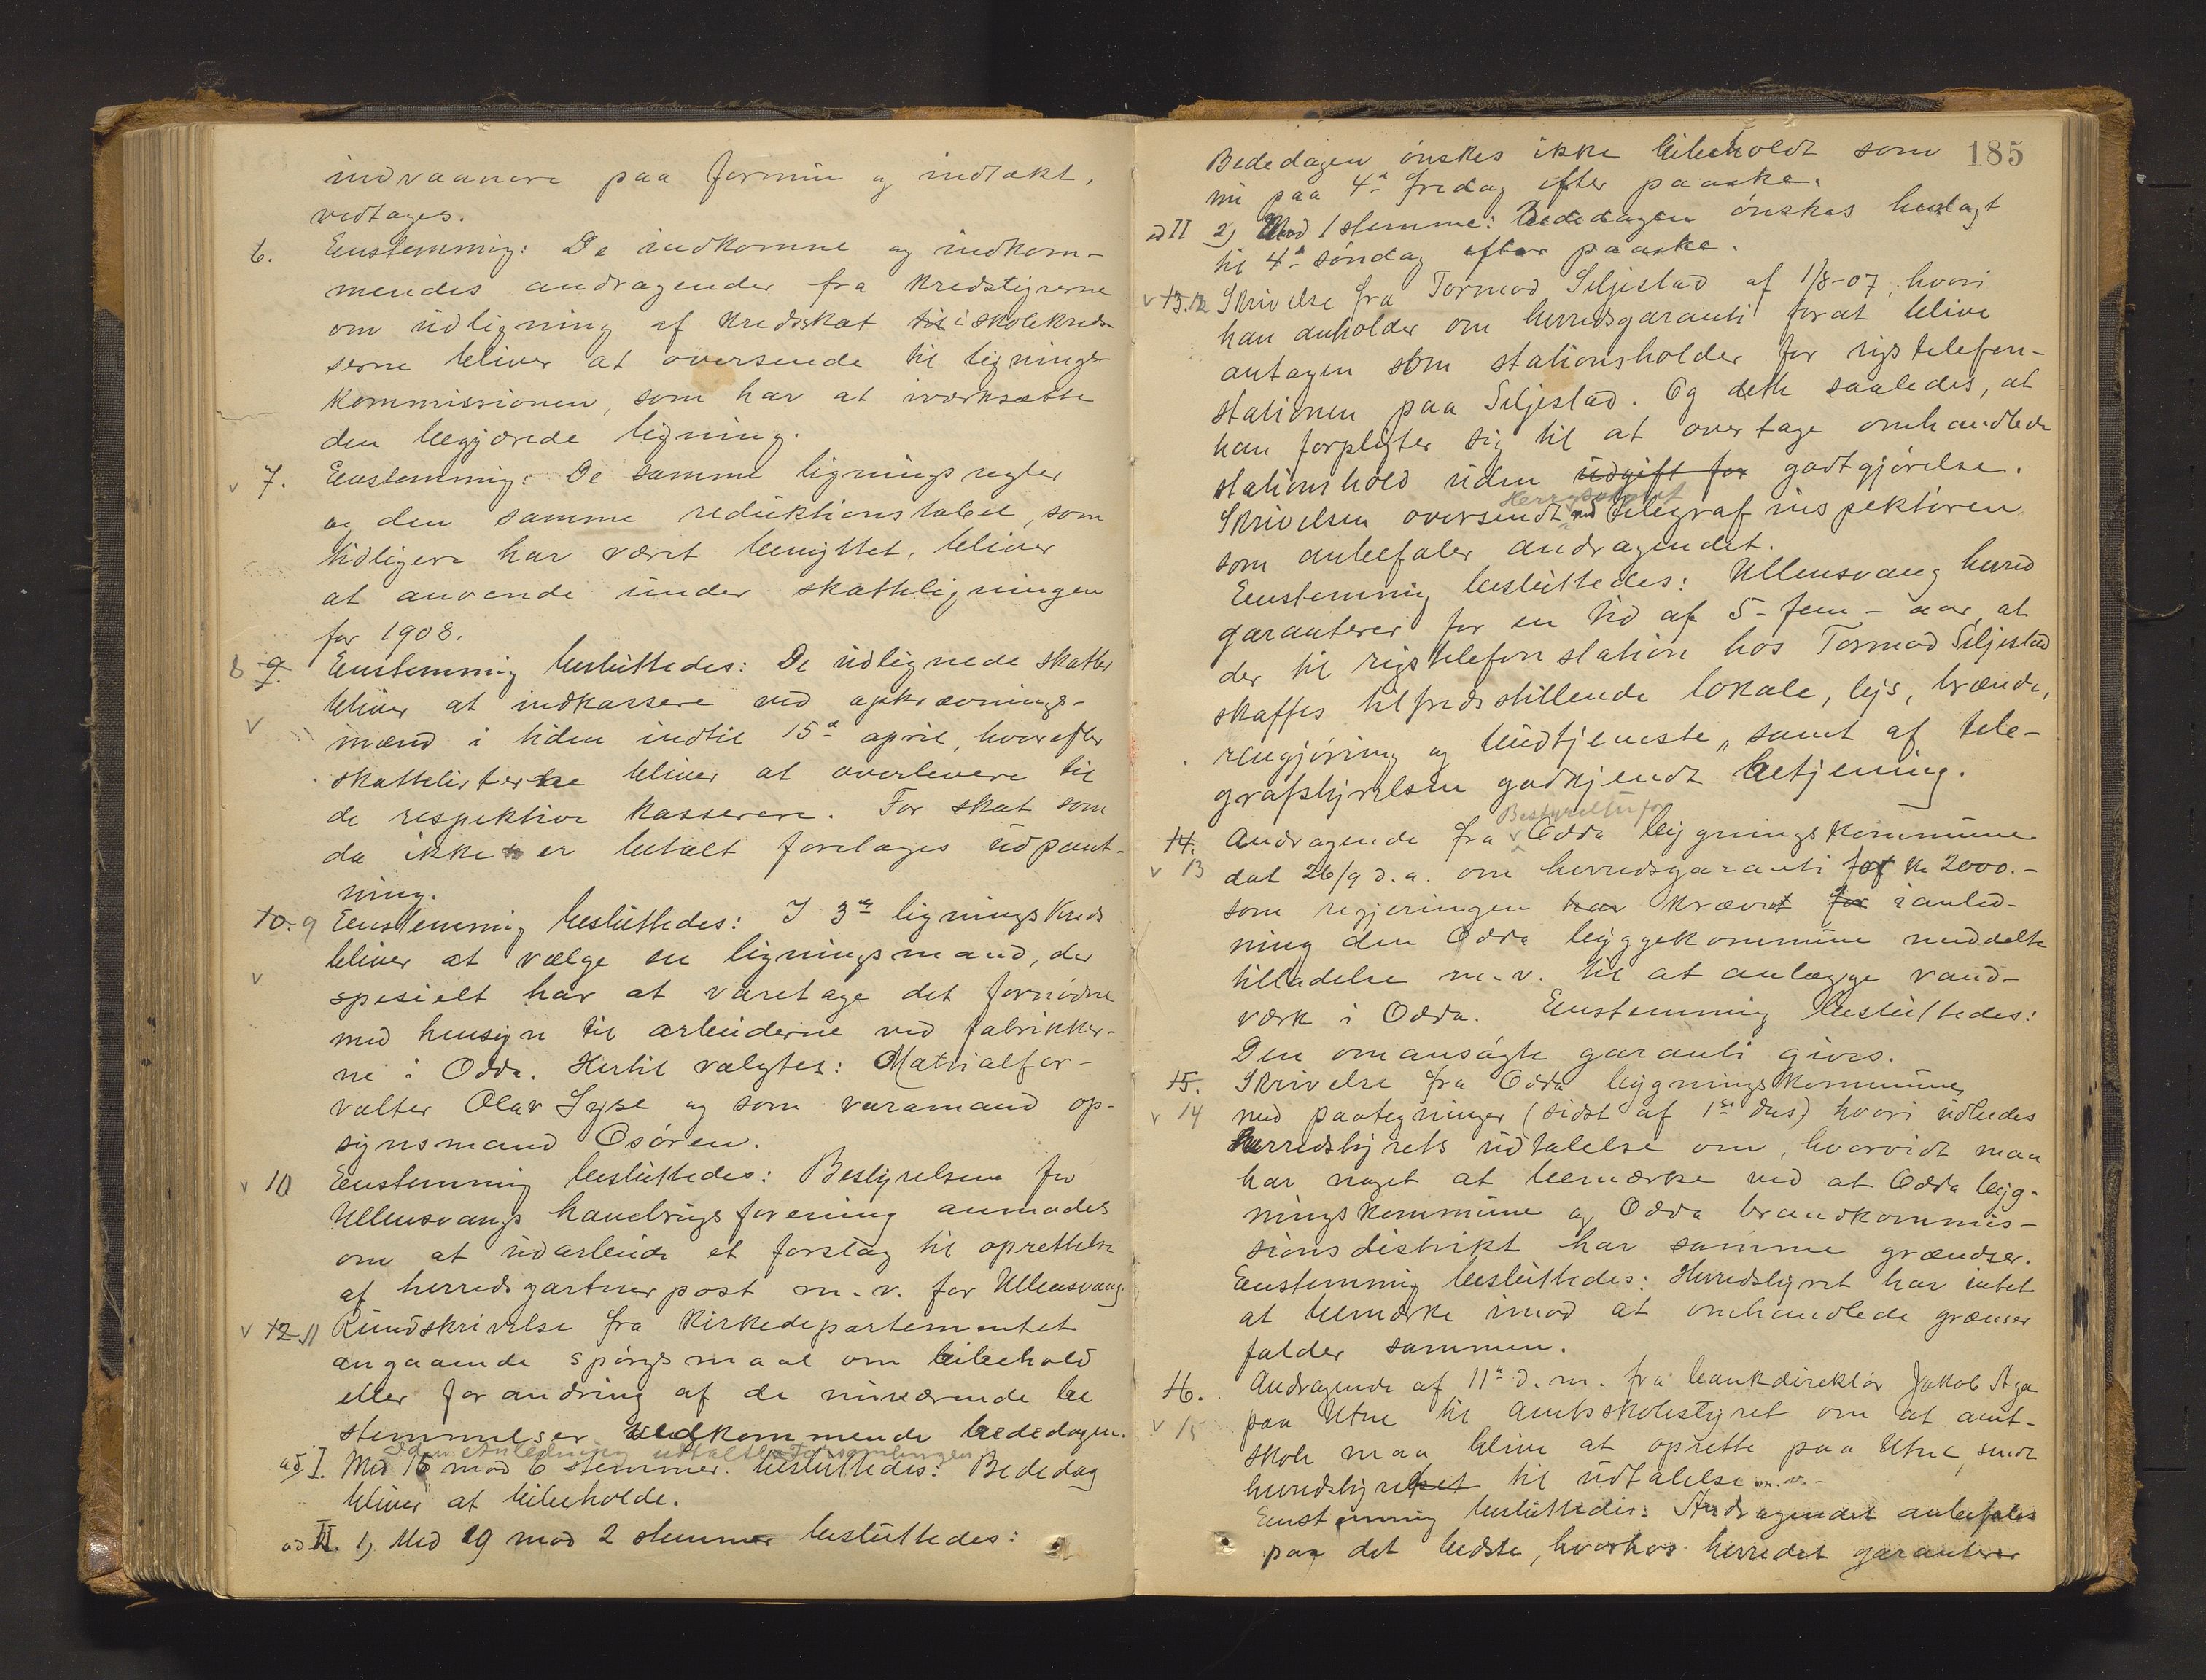 indvaanere paa formue og indtækt,
vedtages.
6. Enstemmig: De indkomne og indkom-
mendes andragender fra kredstyrerne
om udligning af kredsskat til i skolekred-
serne bliver at oversende til lignings-
kommissionen, som har at iværksætte
den begjærede ligning.
v 7. Enstemmig: De samme ligningsregler
og den samme reduktionstabel, som
tidligere har været benyttet, bliver
at anvende under skatteligningen
for 1908.
8 9. Enstemmig besluttedes: De udlignede skatter
bliver at indkassere ved opkrævnings-
v mænd i tiden indtil 15de april, hvorefter
skattelisterne bliver at overlevere til
de respektive kasserere. For skat som
da ikke er betalt foretages udpant-
ning.
10. 9 Enstemmig besluttedes: I 3die ligningskreds
bliver at vælge en ligningsmand, der
v spesielt har at varetage det fornødne
med hensyn til arbeiderne ved fabrikker-
ne i Odda. Hertil valgtes: Matrialfor-
valter Olav Lyse og som varamand op-
synsmand Osøren.
v 10 Enstemmig besluttedes: Bestyrelsen for
Ullensvangs havebrugsforening anmodes
om at udarbeide et forslag til oprettelse
af herredsgartnerpost m.v. for Ullensvang.
v 12 11 Rundskrivelse fra Kirkedepartementet
angaaende spørgsmaal om bibehold
eller forandring af de nuværende be
stemmelser vedkommende bededagen.
I den Anledning udtalte Forsamlingen
ad I. Med 15 mod 6 stemmer besluttedes: Bededag
bliver at bibeholde.
ad II. 1) Med 19 mod 2 stemmer besluttedes:
185
Bededagen ønskes ikke bibeholdt som
nu paa 4de fredag efter paaske.
ad II 2) Mod 1 stemme: Bededagen ønskes henlagt
til 4de søndag efter paaske.
v 13. 12 Skrivelse fra Tormod Seljestad af 1/8-07, hvori
han anholder om herredsgaranti forat blive
antagen som stationsholder for rigstelefon-
stationen paa Seljestad. Og dette saaledes, at
han forpligter sig til at overtage omhandlede
stationshold uden udgift for godtgjørelse.
Skrivelsen oversendt ved telegrafinspektøren
som anbefaler andragendet.
Enstemmig besluttedes: Ullensvang herred
garanterer for en tid af 5 - fem - aar, at
der til rigstelefonstation hos Tormod Seljestad
skaffes tilfredsstillende lokale, lys, brænde,
rengjøring og budtjeneste, samt af tele-
grafstyrelsen godkjendt betjening.
Bestyrelsen for
14. Andragende fra Odda bygningskommune
v 13 dat 26/9 d.a. om herredsgaranti for kr 2000.-
som regjeringen har krævet for i anled-
ning den Odda byggekommune meddelte
tilladelse m.v. til at anlægge vand-
værk i Odda. Enstemmig besluttedes:
Den omansøgte garanti gives.
15. Skrivelse fra Odda bygningskommune
v 14 med paategninger (sidst af 1ste ds) hvori udbedes
herredstyrets udtalelse om, hvorvidt man
har noget at bemærke ved at Odda byg-
ningskommune og Odda brandkommis-
sionsdistrikt har samme grændser.
Enstemmig besluttedes: Herredstyret har intet
at bemærke imod at omhandlede grænser
falder sammen.
16. Andragende af 11te d.m. fra bankdirektør Jakob Aga
v 15 paa Utne til Amtsskolestyret om at amt-
skole maa blive at oprette paa Utne, sendt
herredstyret til udtalelse m.v.-
Enstemmig besluttedes: Andragendet anbefales
paa det bedste, hvorhos herredet garanterer